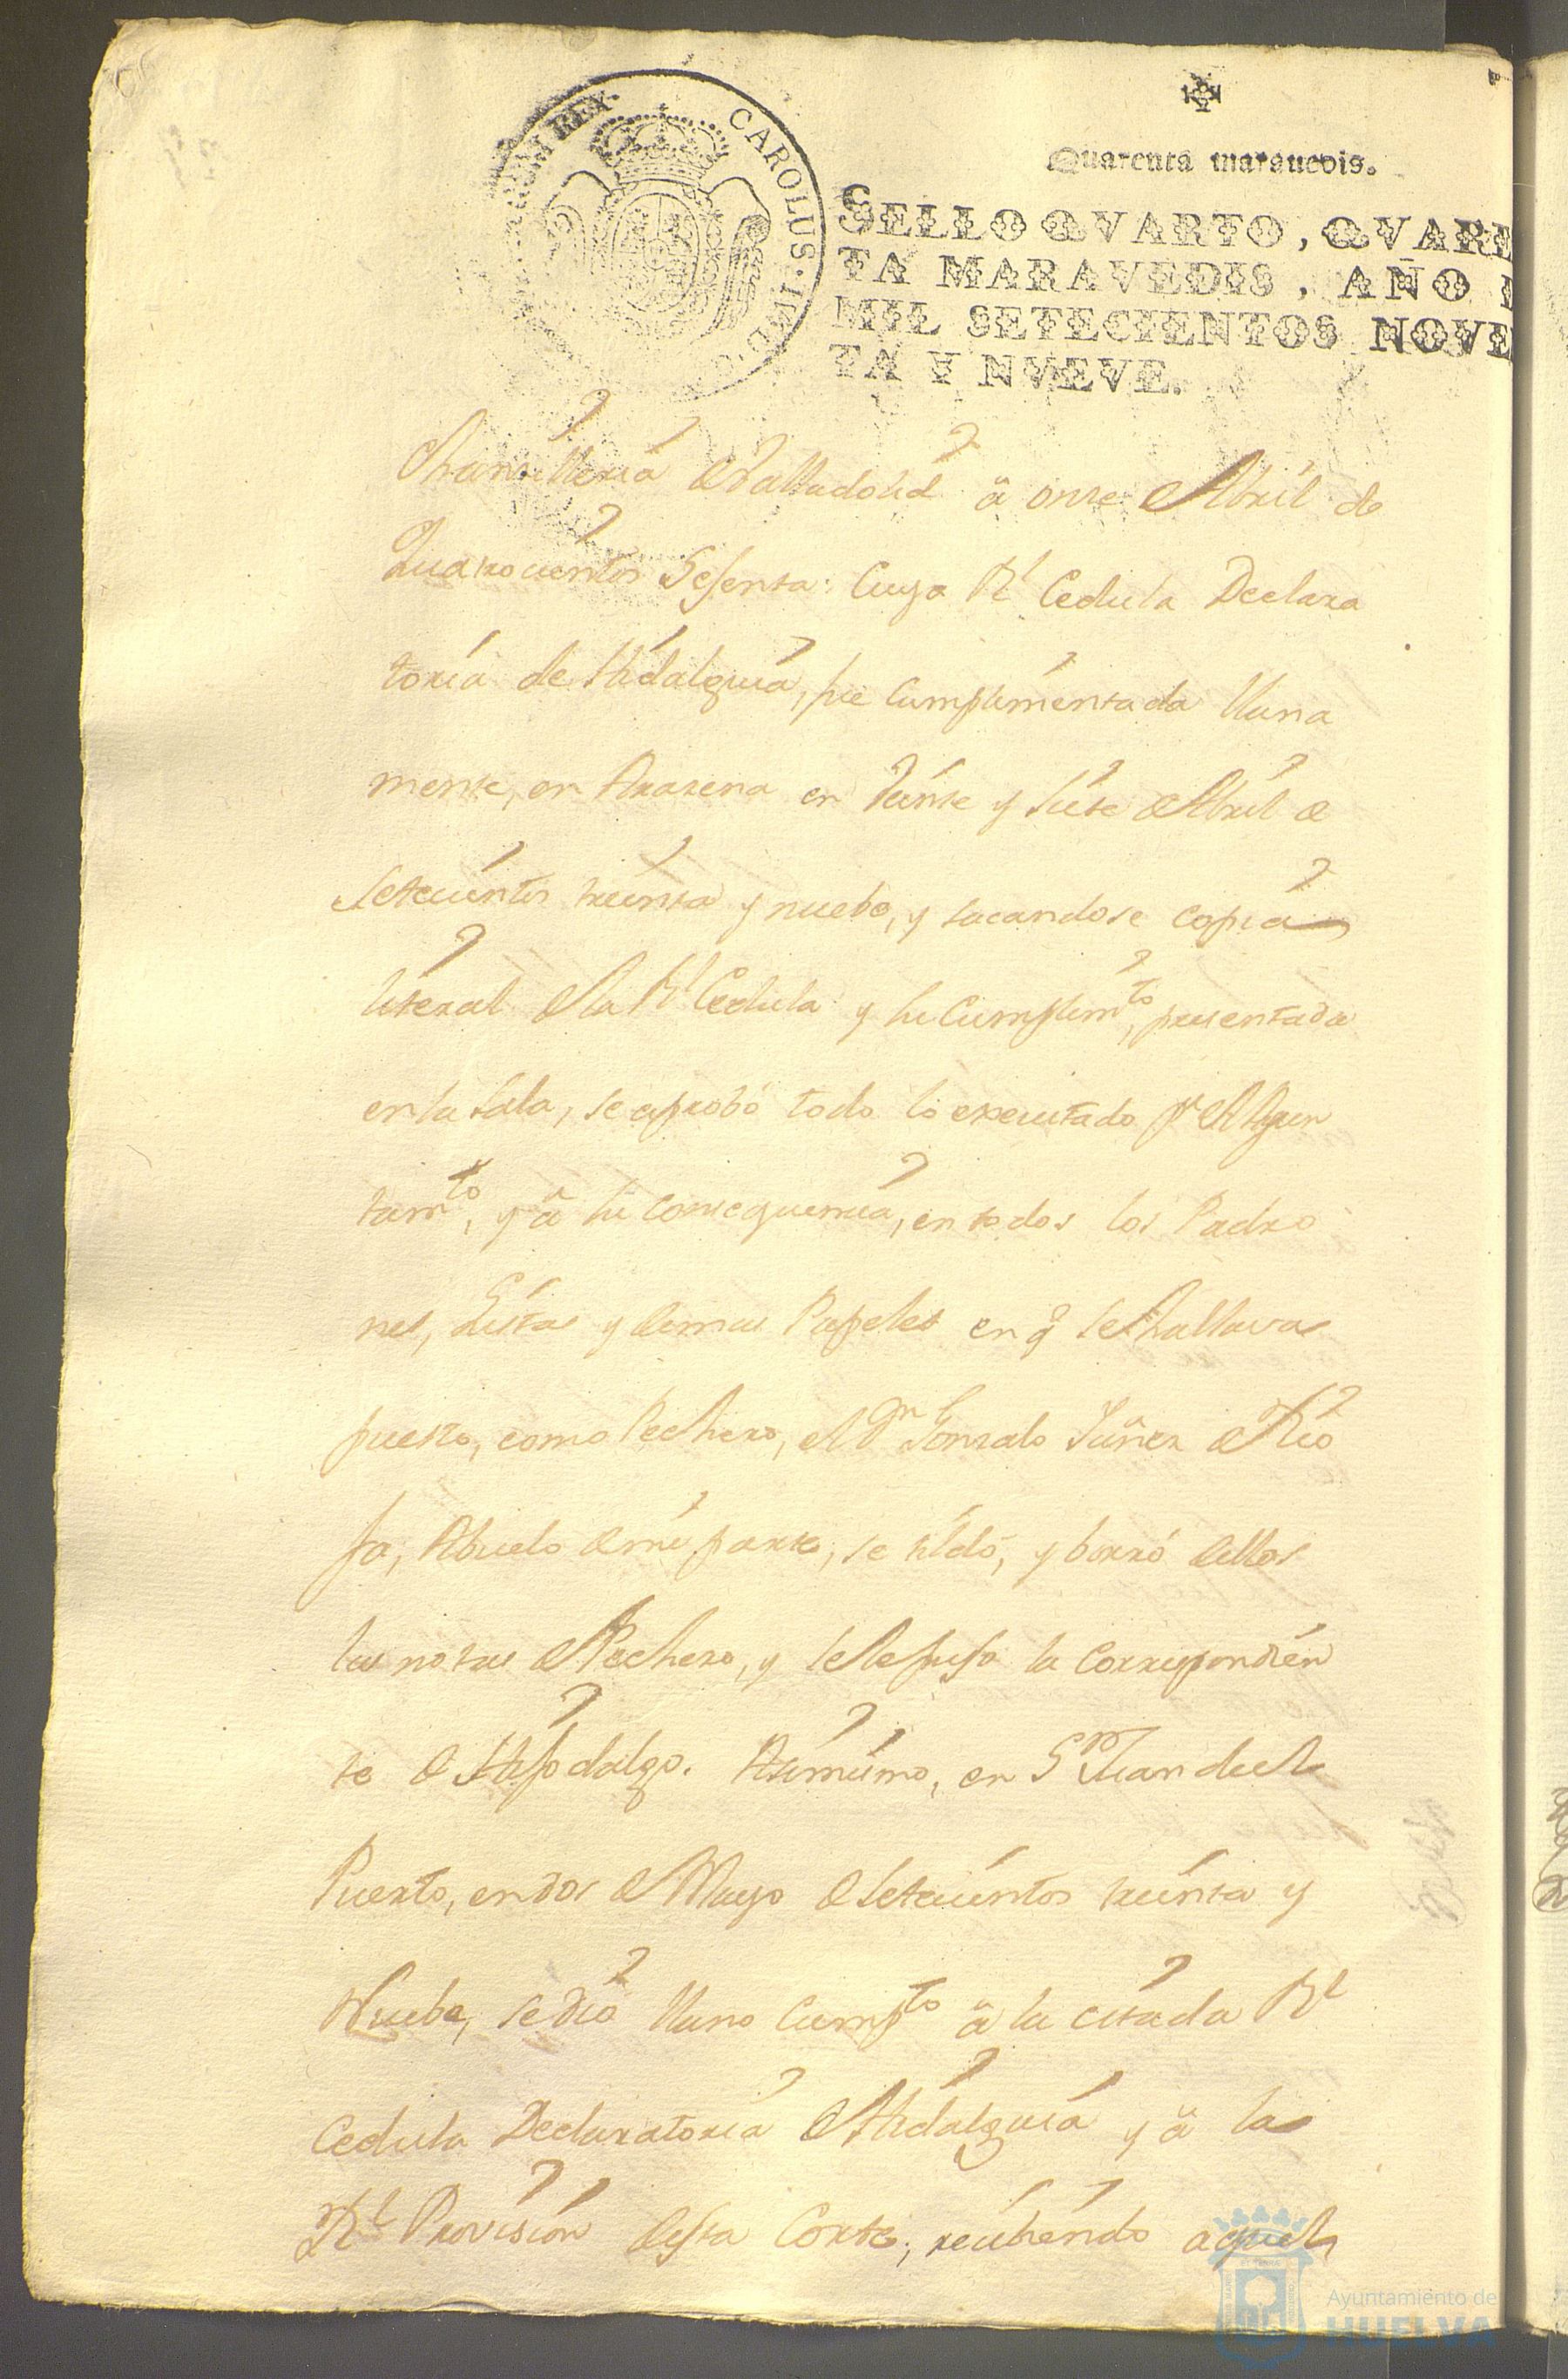 Quarenta marauedis.
CAROLUS · IV · D · G ·
REX ·
SELLO QVARTO, QVARE
TA MARAVEDIS, AÑO
MIL SETECIENTOS NOVE
TA Y NVEVE.
Chansilleria de Valladolid â onse de Abril de
Quatrocientos Sesenta: Cuya Rl Cedula Declara
toria de Hidalguia, fue cumplimentada llana
mente, en Arasena en veinte y siete de Abril de
setecientos treinta y nuebe, y sacandose copia
literal de la Rl Cedula y su Cumplimto, presentada
en la Sala, se aprobó todo lo executado pr el Ayun
tamto, y â su consequensia, en todos los Padro
nes, Listas y demas Papeles en q se hallava
puesto, como Pechero, el Dn Gonsalo Yañez de Rio
ja, Abuelo de mi parte, se tildó, y borró dellos
las notas de Pechero, y se le puso la correspondien
te de Hijodalgo. Asimismo, en Sn Juan del
Puerto, en dos de Mayo de setecientos treinta y
Nuebe, se dió llano Cumpto â la citada Rl
Cedula Declaratoria de Hidalguia y â la
Rl Provision desta Corte, recibiendo aquel
Ayuntamiento de
HUELVA